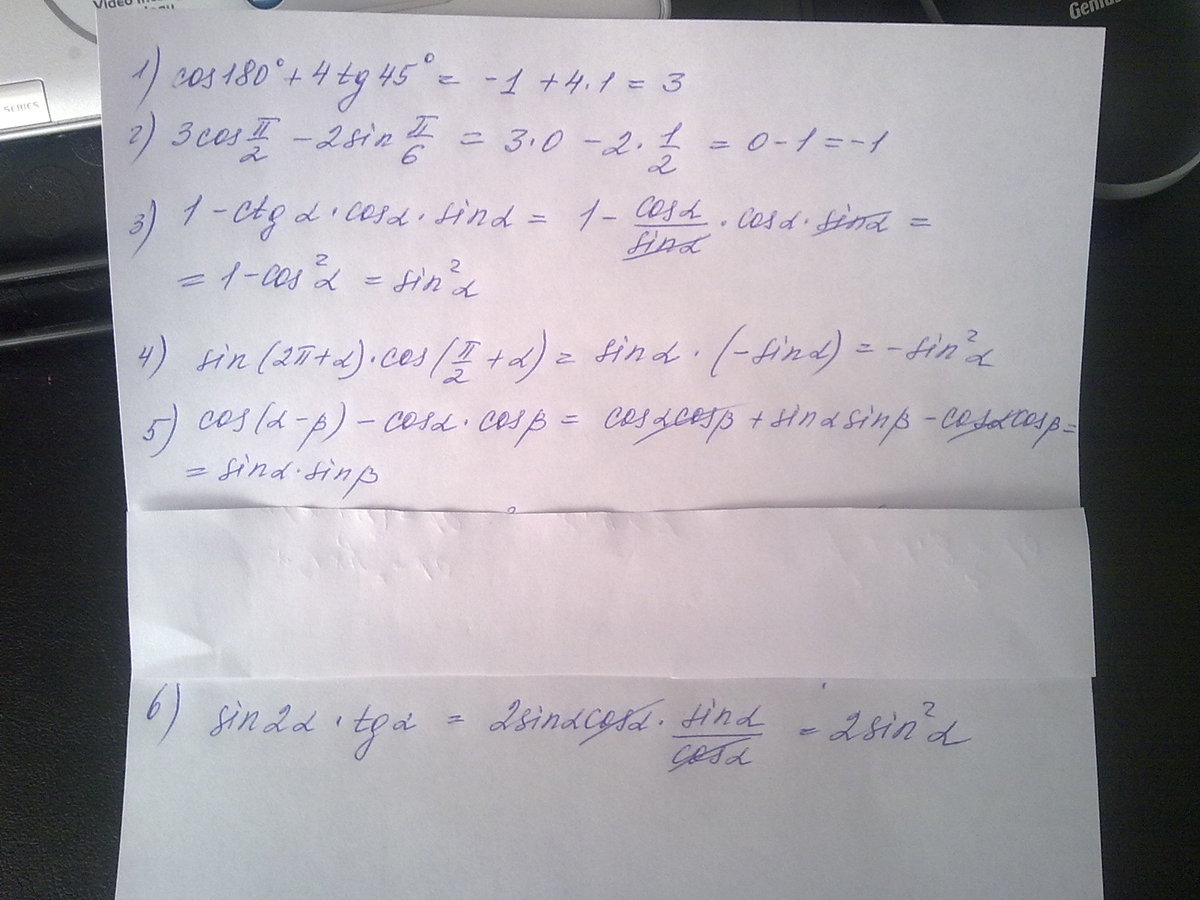 Genius
SERIES
1) cos180° + 4tg45° = -1 + 4·1 = 3
2) 3cos π/2 - 2sin π/6 = 3·0 - 2·1/2 = 0-1 = -1
3) 1 - ctgα·cosα·sinα = 1 - cosα/sinα · cosα·sinα =
= 1-cos²α = sin²α
4) sin(2π+α)·cos(π/2 + α) = sinα · (-sinα) = -sin²α
5) cos(α-β) - cosα·cosβ = cosαcosβ + sinαsinβ - cosαcosβ =
= sinα·sinβ
6) sin2α · tgα = 2sinαcosα · sinα/cosα = 2sin²α